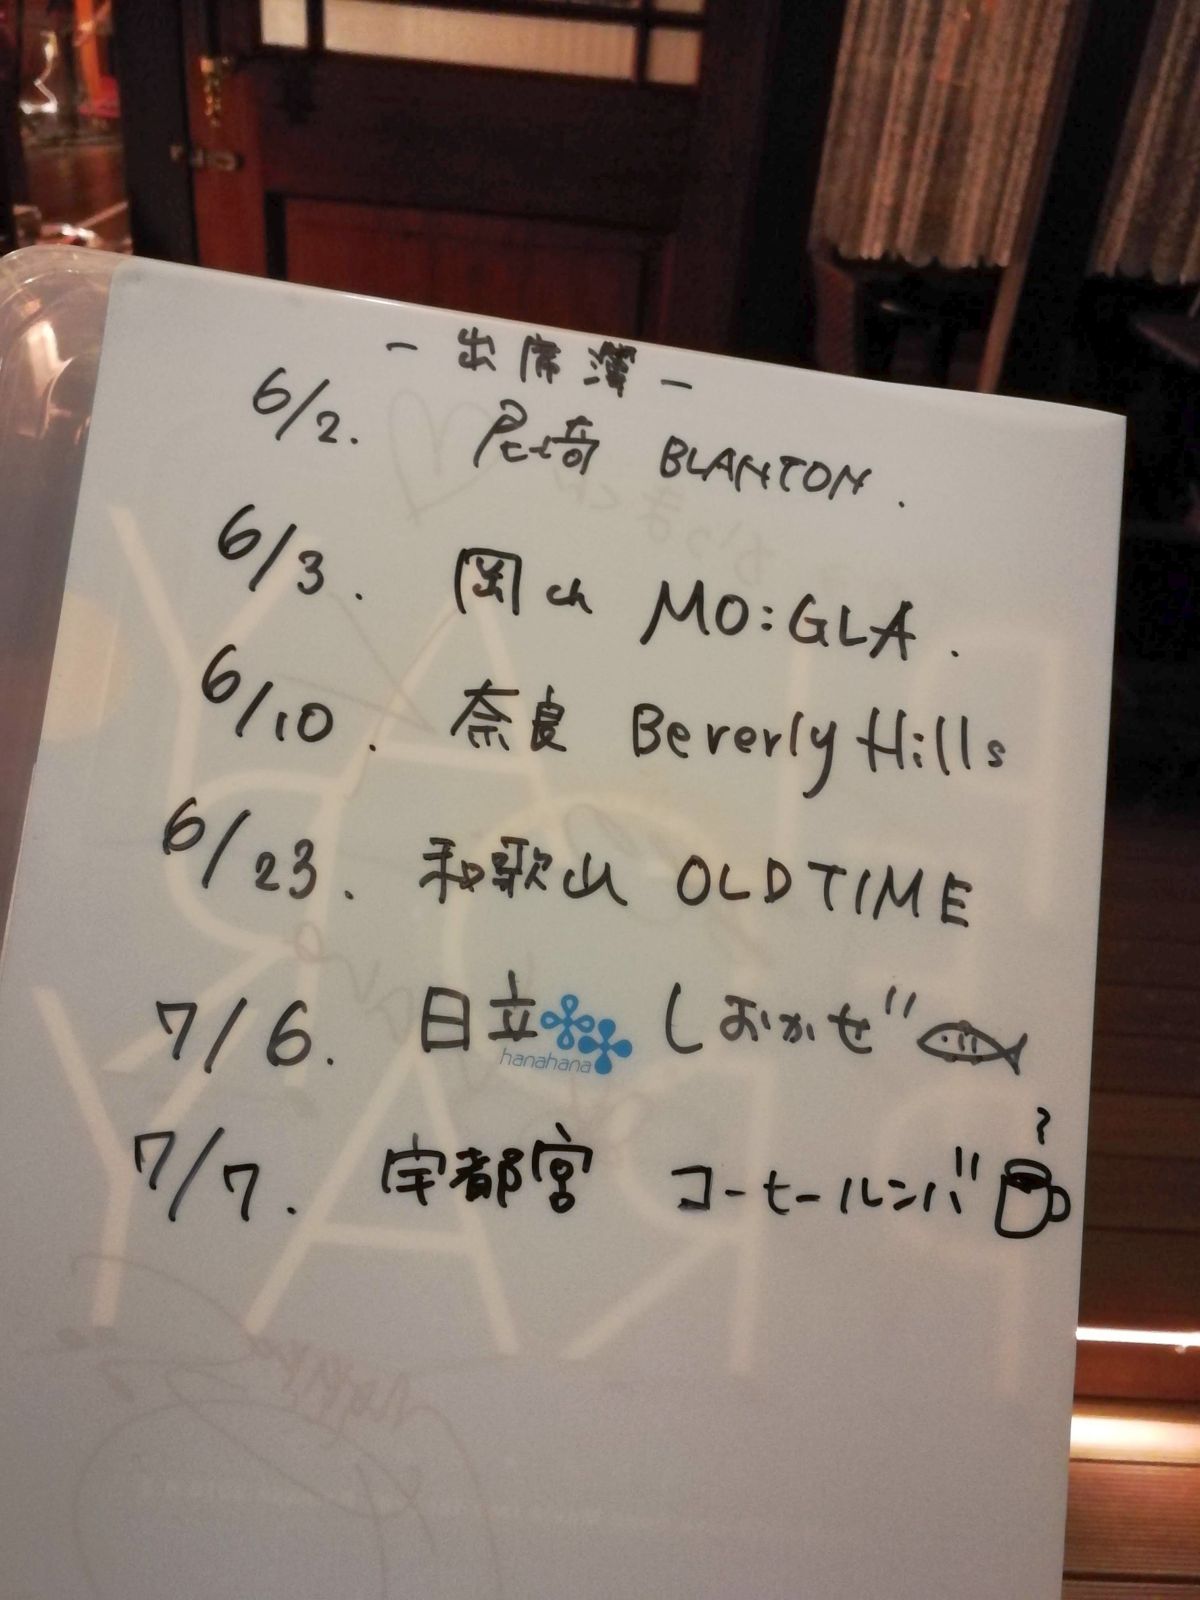 — 出席簿 —
6/2. 尼崎 BLANTON.
6/3. 岡山 MO:GLA.
6/10. 奈良 Beverly Hills
6/23. 和歌山 OLD TIME
7/6. 日立 しおかぜ
hanahana
7/7. 宇都宮 コーヒールンバ